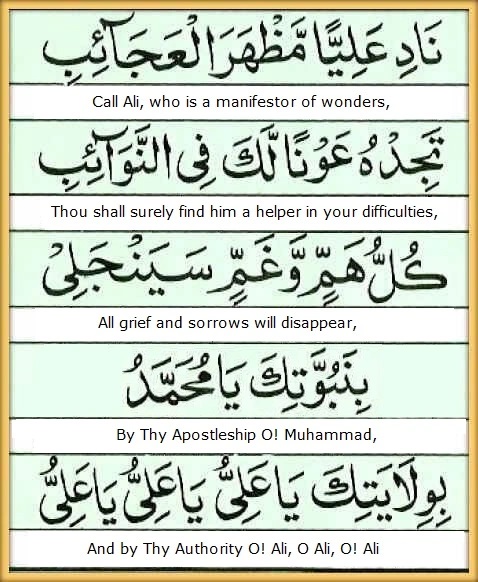 نَادِ عَلِيًّا مَّظْهَرَ الْعَجَآئِبِ
Call Ali, who is a manifestor of wonders,
تَجِدْهُ عَوْنًا لَّكَ فِى النَّوَآئِبِ
Thou shall surely find him a helper in your difficulties,
كُلُّ هَمٍّ وَّغَمٍّ سَيَنْجَلِىْ
All grief and sorrows will disappear,
بِنَبُوَّتِكَ يَا مُحَمَّدُ
By Thy Apostleship O! Muhammad,
بِوِلَايَتِكَ يَا عَلِىُّ يَا عَلِىُّ يَا عَلِىُّ
And by Thy Authority O! Ali, O Ali, O! Ali